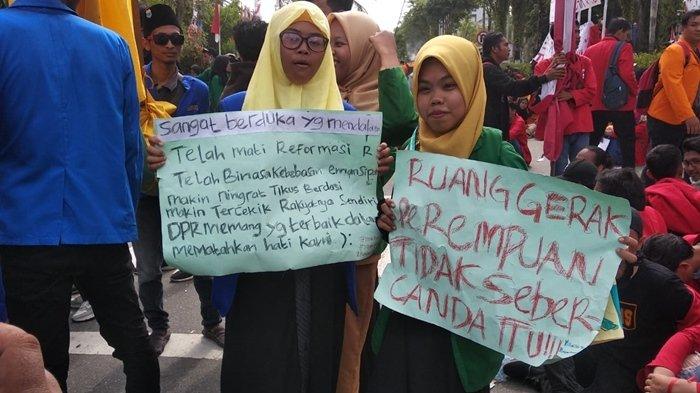 Sangat berduka yg mendalam
Telah mati Reformasi
Telah Binasa Kebebasan
makin Ningrat Tikus Berdasi
makin Tercekik Rakyatnya Sendiri
DPR memang yg terbaik dalam
mematahkan hati kami ):
RUANG GERAK
PEREMPUAN
TIDAK SEBER-
CANDA ITU!!!